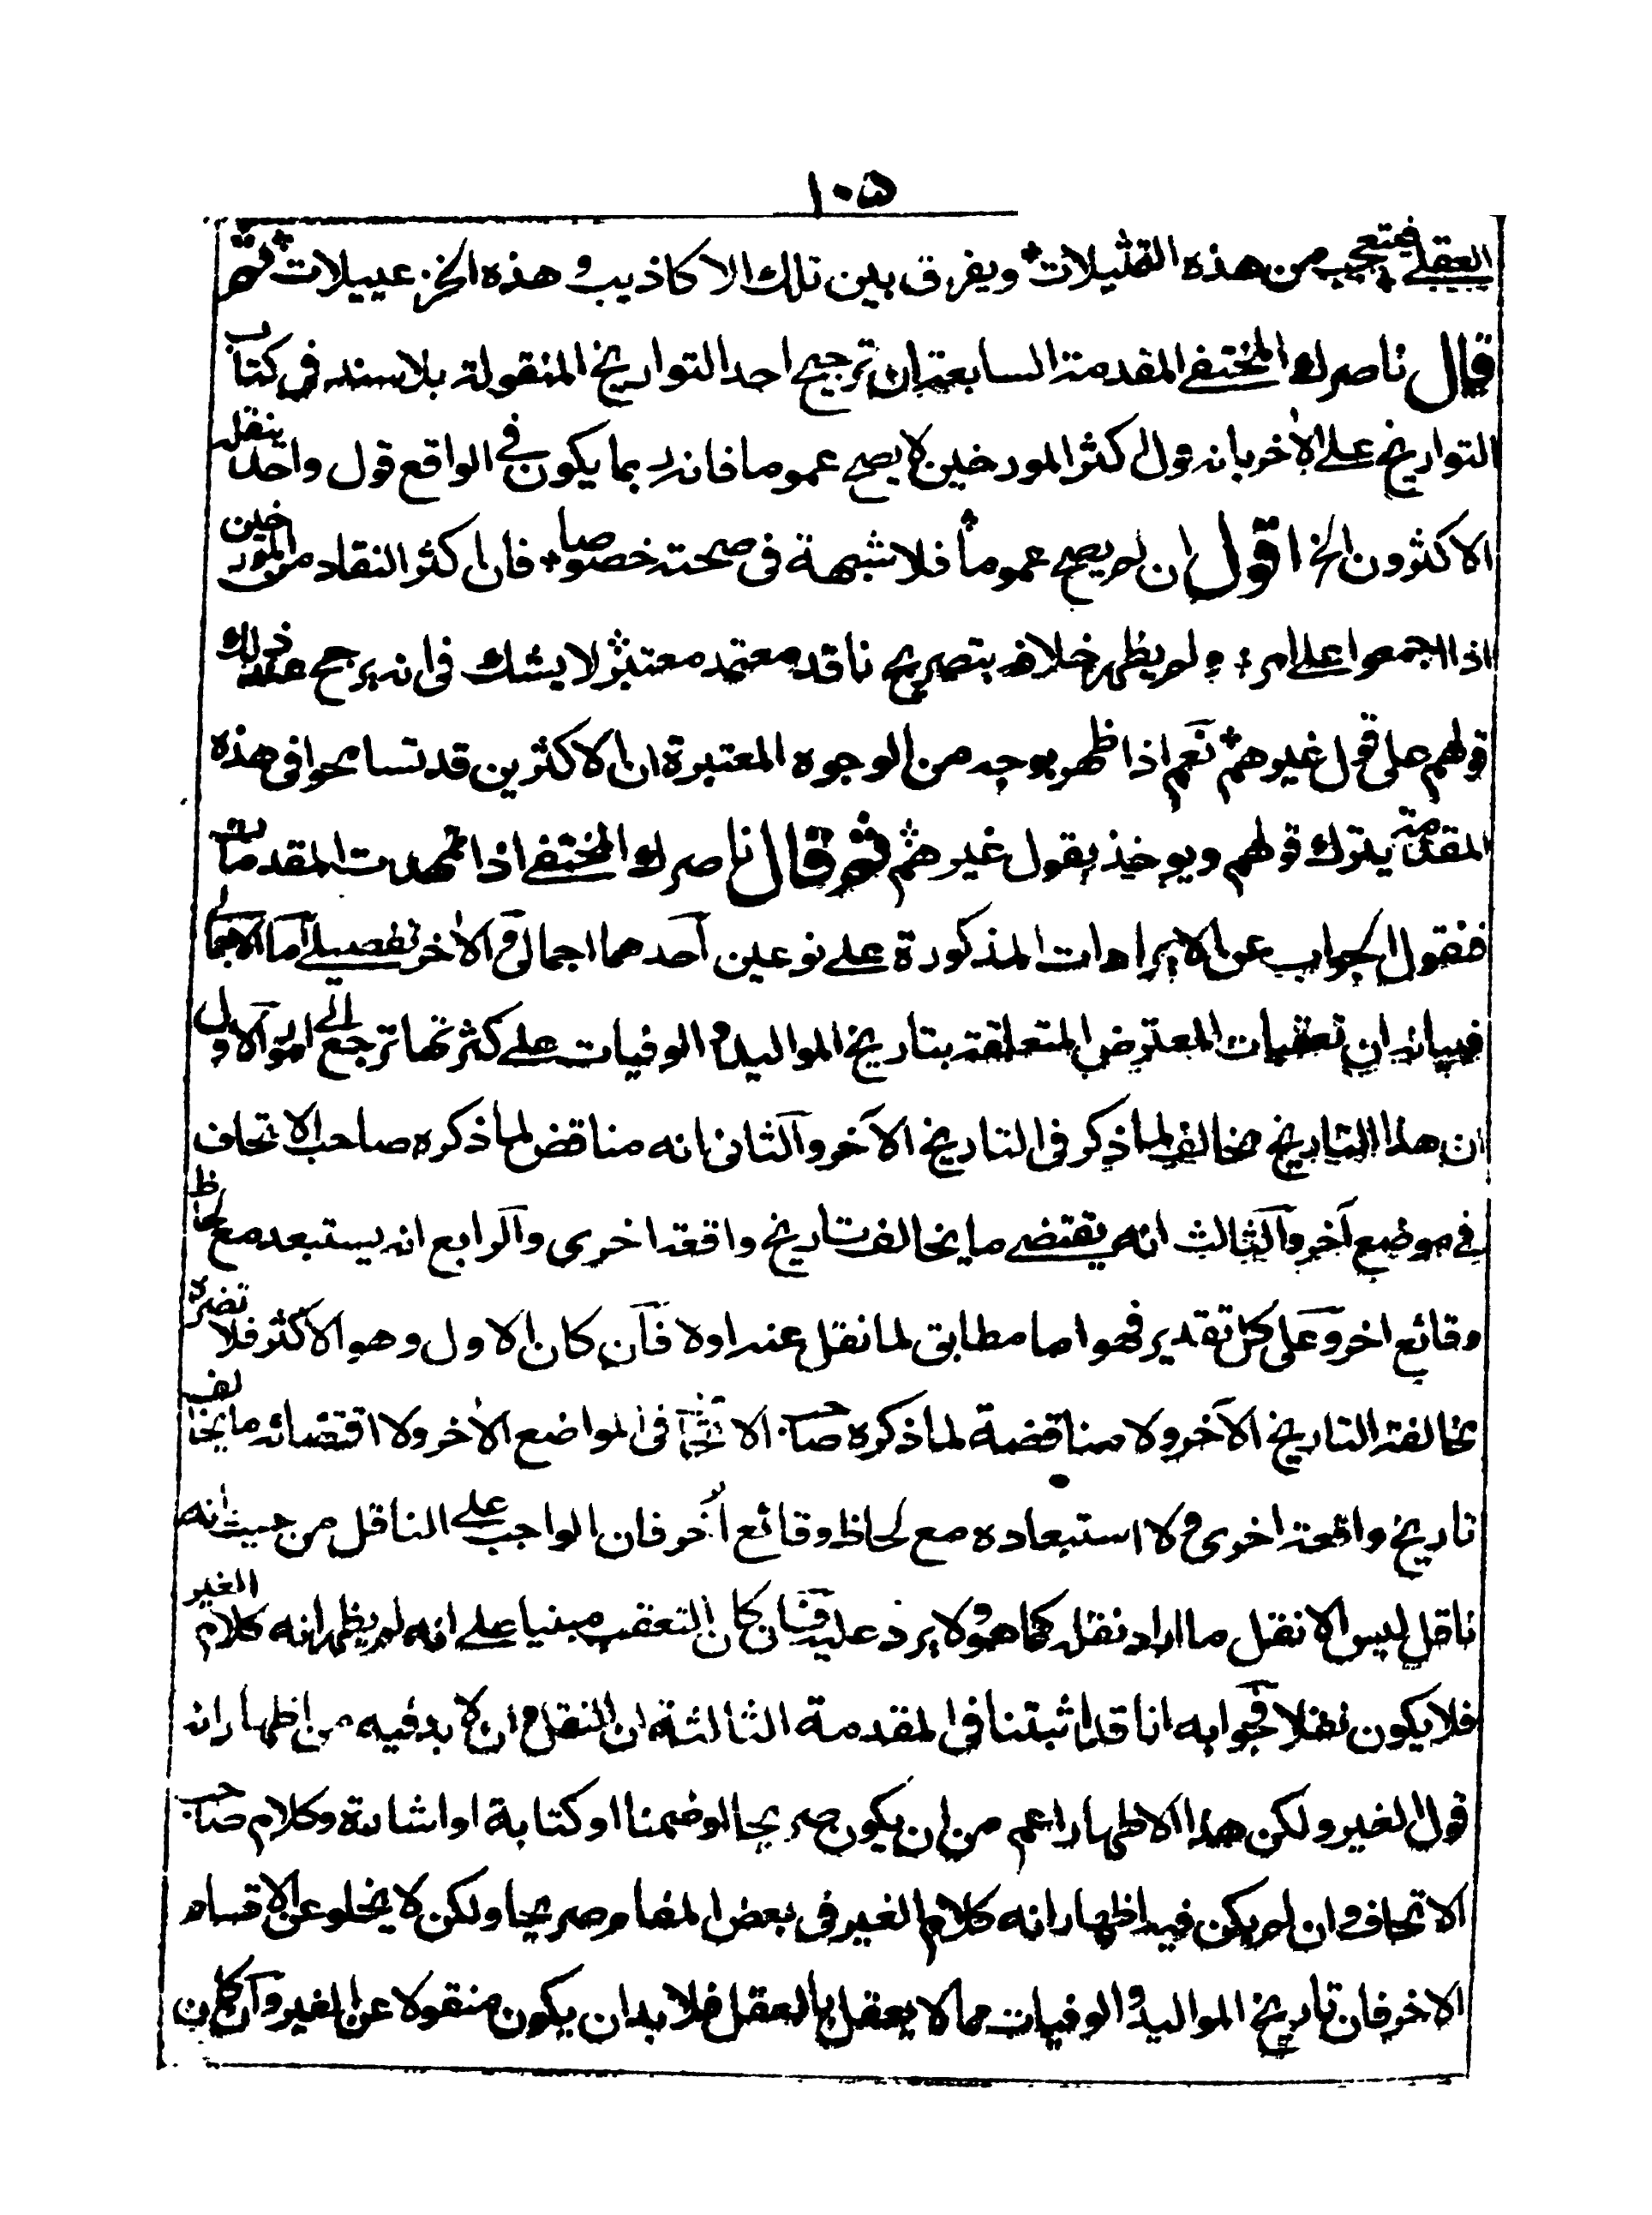 ١٠٥
العقل فيتعجب من هذه التمثيلات ويفرق بين تلك الاكاذيب و هذه الخزعبيلات ثم
قال ناصرك المختفي المقدمة السابعة ان ترجيح احد التواريخ المنقولة بلا سند في كتاب
التواريخ على الاخر بانه قول اكثر المورخين لا يصح عموما فانه ربما يكون في الواقع قول واحد ينقله
الاكثرون الخ اقول ان لم يصح عموما فلا شبهة في صحته خصوصا فان اكثر النقاد من المورخين
اذا اجمعوا على امر ولم يظهر خلافه بتصريح ناقد معتمد معتبر لا يشك في انه يرجح عند ذلك
قولهم على قول غيرهم نعم اذا ظهر بوجه من الوجوه المعتبرة ان الاكثرين قد تسامحوا في هذه
المقدمة يترك قولهم ويوخذ بقول غيرهم ثم قال ناصرك المختفي اذا تمهدت المقدمات
فنقول الجواب عن الايرادات المذكورة على نوعين احدهما اجمالي والاخر تفصيلي اما الاجمالي
فبيانه ان تعقبات المعترض المتعلقة بتاريخ المواليد والوفيات على كثرتها ترجع الى امور الاول
ان هذا التاريخ مخالف لما ذكر في التاريخ الآخر والثاني انه مناقض لما ذكره صاحب الاتحاف
في موضع آخر والثالث انه يقتضي ما يخالف تاريخ واقعة اخرى والرابع انه يستبعد مع لحاظ
وقائع اخر وعلى كل تقدير فهو اما مطابق لما نقل عنه اولا فان كان الاول وهو الاكثر فلا تضره
مخالفة التاريخ الآخر ولا مناقضة لما ذكره صاحب الاتحاف في المواضع الاخر ولا اقتضائه ما يخالف
تاريخ واقعة اخرى ولا استبعاده مع لحاظ وقائع اُخر فان الواجب على الناقل من حيث انه
ناقل ليس الا نقل ما اراد نقله كما هو ولا يرد عليه فان كان التعقب مبنيا على انه لم يظهر انه كلام الغير
فلا يكون نقلا فجوابه انا قد اثبتنا في المقدمة الثالثة ان النقل وان لا بد فيه من اظهار انه
قول الغير ولكن هذا الاظهار اعم من ان يكون صريحا او ضمنا او كتابة او اشارة وكلام صاحب
الاتحاف وان لم يكن فيه اظهار انه كلام الغير في بعض المقام صريحا ولكن لا يخلو عن الاقسام
الاخر فان تاريخ المواليد والوفيات مما لا يعقل بالعقل فلا بد ان يكون منقولا عن الغير وان كان